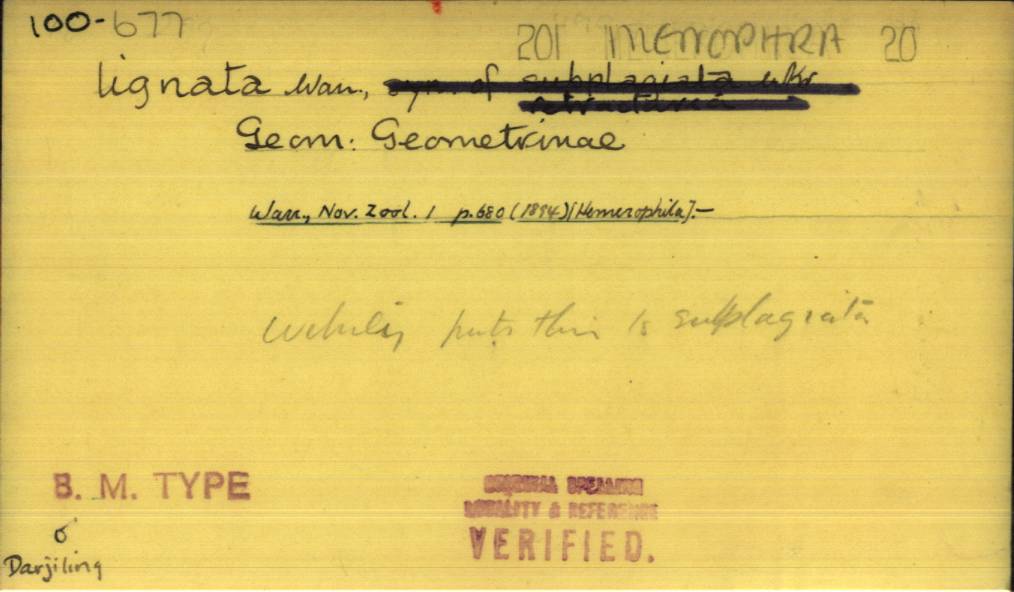 100-677
201 MENOPHRA 20
lignata Warr., syn. of subplagiata Wkr
retractaria
Geom: Geometrinae
Warr., Nov. Zool. 1 p.680 (1894) [Hemerophila].—
puts this to subplagiata
B. M. TYPE
♂
Darjiling
ORIGINAL SPELLING
LOCALITY & REFERENCE
VERIFIED.